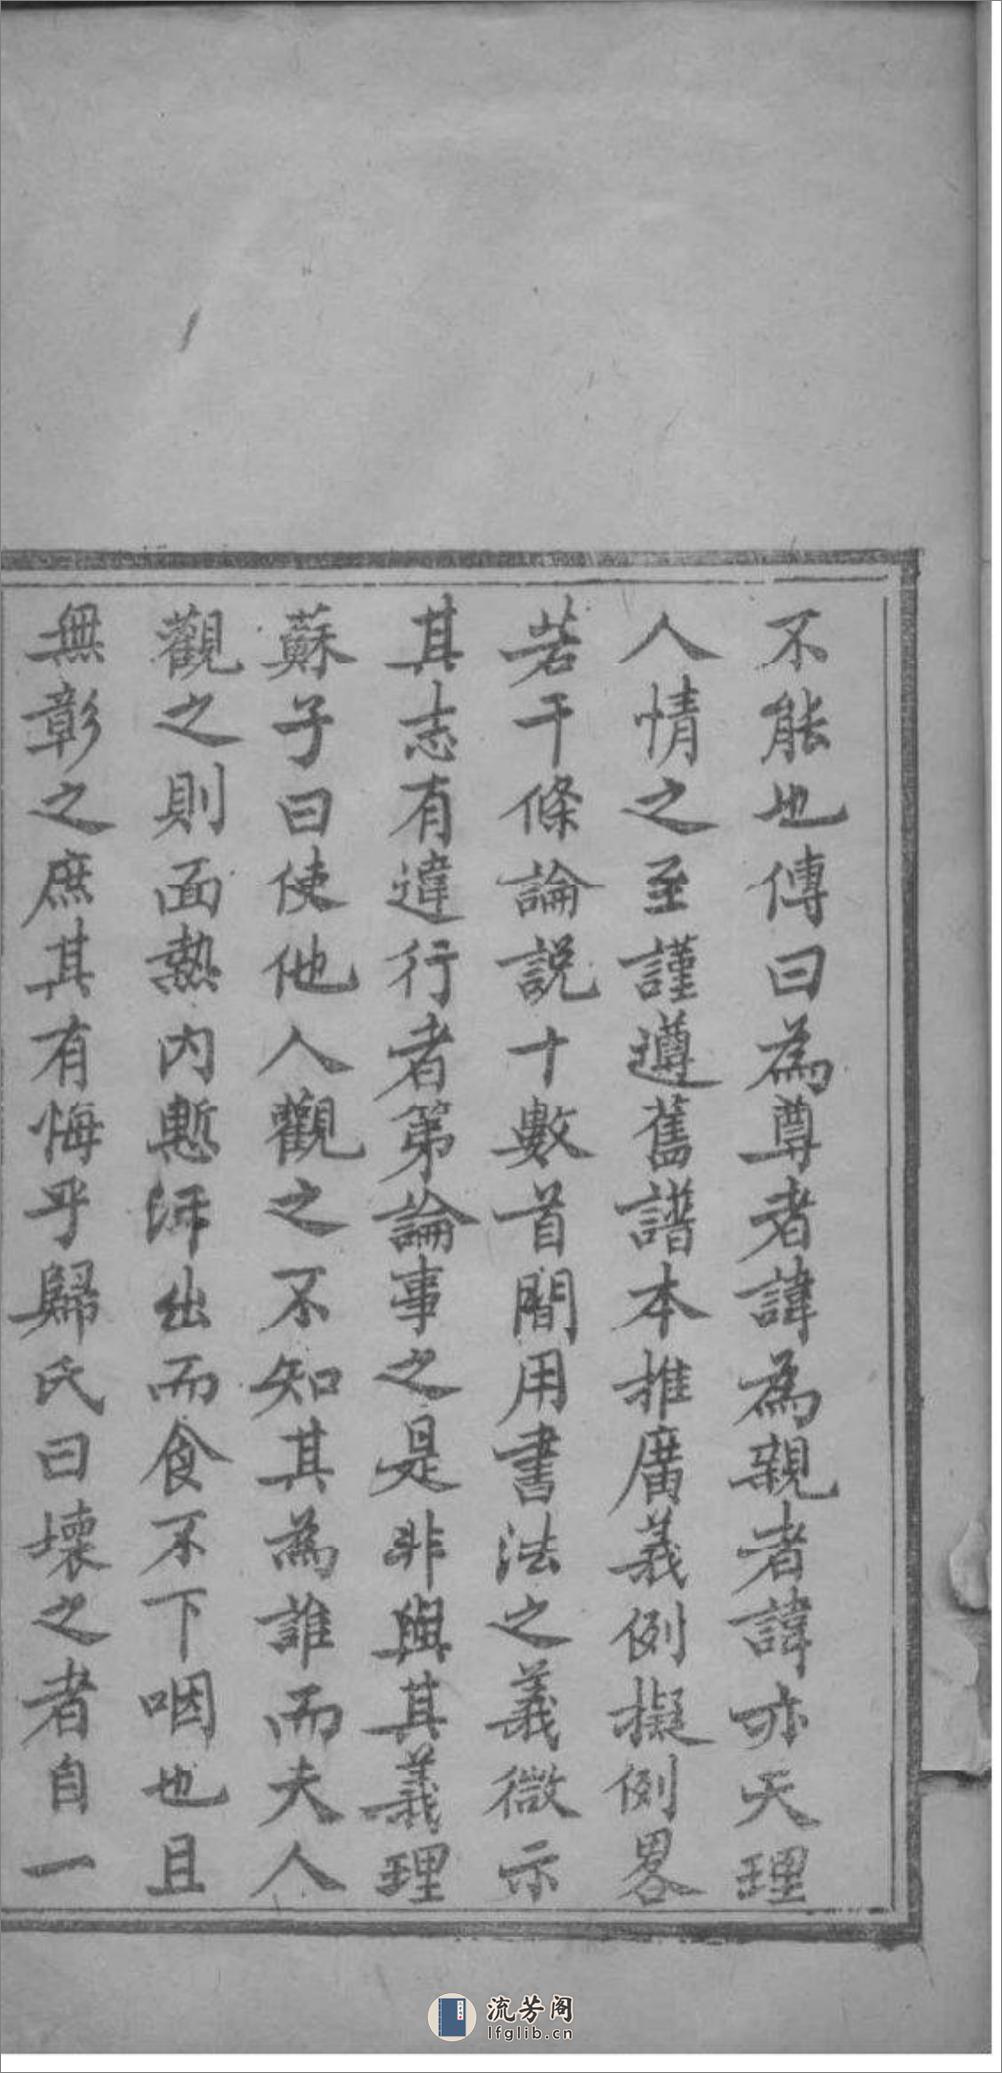 不能也傳曰為尊者諱為親者諱亦天理
人情之至謹遵舊譜本推廣義例擬例畧
若干條論説十數首間用書法之義微示
其志有違行者第論事之是非與其義理
蘇子曰使他人觀之不知其為誰而夫人
觀之則面熱内慙汗出而食不下咽也且
無彰之庶其有悔乎歸氏曰壞之者自一
流芳阁
lfglib.cn